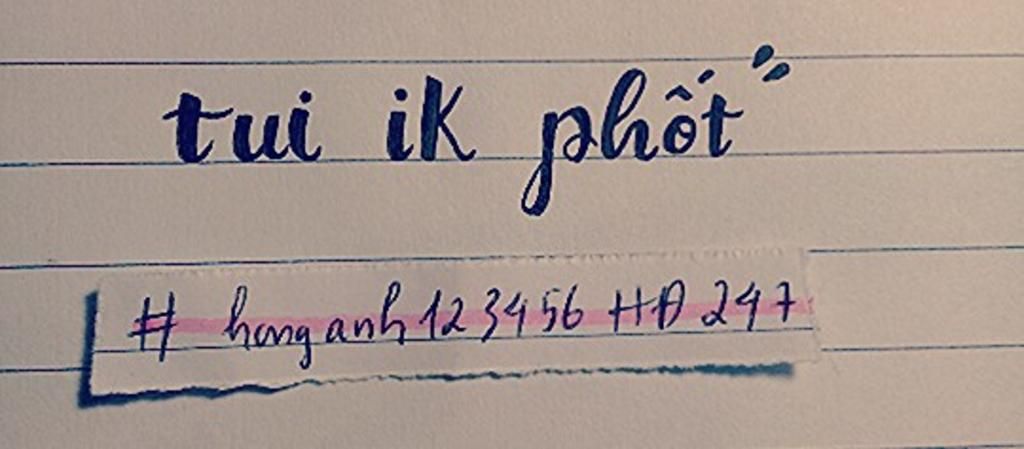 tui ik phốt
# honganh123456 HĐ 247